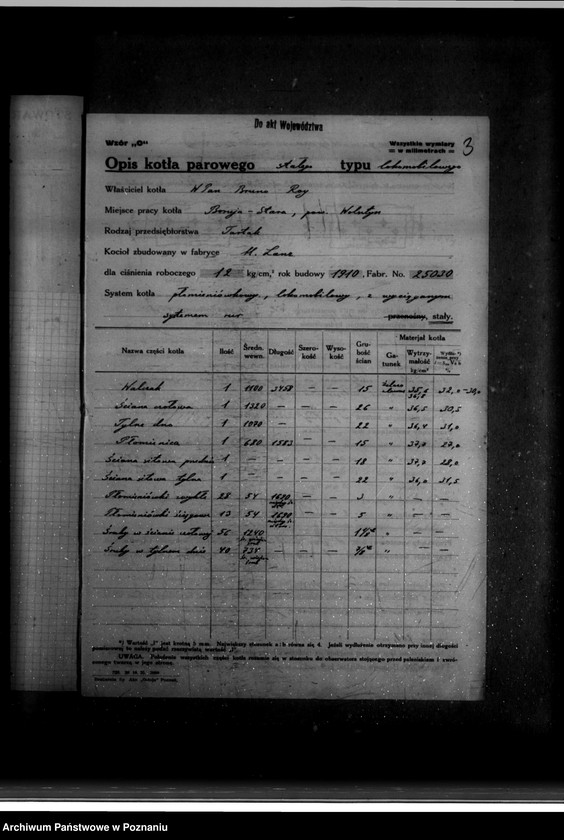 Do akt Województwa
3
Wzór „C"
Wszystkie wymiary
w milimetrach
Opis kotła parowego stałego typu lokomobilowego
Właściciel kotła WPan Bruno Ray
Miejsce pracy kotła stara, pow. Wolsztyn
Rodzaj przedsiębiorstwa Tartak
Kocioł zbudowany w fabryce H. Lanz
dla ciśnienia roboczego 12 kg/cm,² rok budowy 1910, Fabr. No. 25030
System kotła płomieniówkowy, lokomobilowy, z wyciąganym
systemem rur przenośny, stały.
Nazwa części kotła Ilość Średn. wewn. Długość Szerokość Wysokość Grubość ścian Materjał kotła
Gatunek Wytrzymałość kg/cm² %
Walczak 1 1100 3458 — — 15 żelazo zlewne 35,6 36,8 32,0–30,0
Ściana rurowa 1 1320 — — — 26 „ 36,5 30,5
Tylne dno 1 1070 — — — 22 „ 36,4 31,0
Płomienica 1 680 1583 — — 15 „ 37,0 27,0
Ściana sitowa przednia 1 — — — — 18 „ 37,0 28,0
Ściana sitowa tylna 1 — — — — 22 „ 36,0 31,5
Płomieniówki zwykłe 28 54 1680 — — 3 „ — —
Płomieniówki ściągowe 13 54 1680 — — 5 „ — —
Śruby w ścianie rurowej 56 1240 — — — „ — —
Śruby w tylnem dnie 40 735 — — — „ — —
*) Wartość „l" jest kreską 5 mm. Największy stosunek a : b równa się 4. Jeżeli wydłużenie otrzymano przy innej długości
pomiarowej to należy podać rzeczywistą wartość „l".
UWAGA. Położenie wszystkich części kotła rozumie się w stosunku do obserwatora stojącego przed paleniskiem i zwróconego
twarzą w jego stronę.
Poznań.
Archiwum Państwowe w Poznaniu